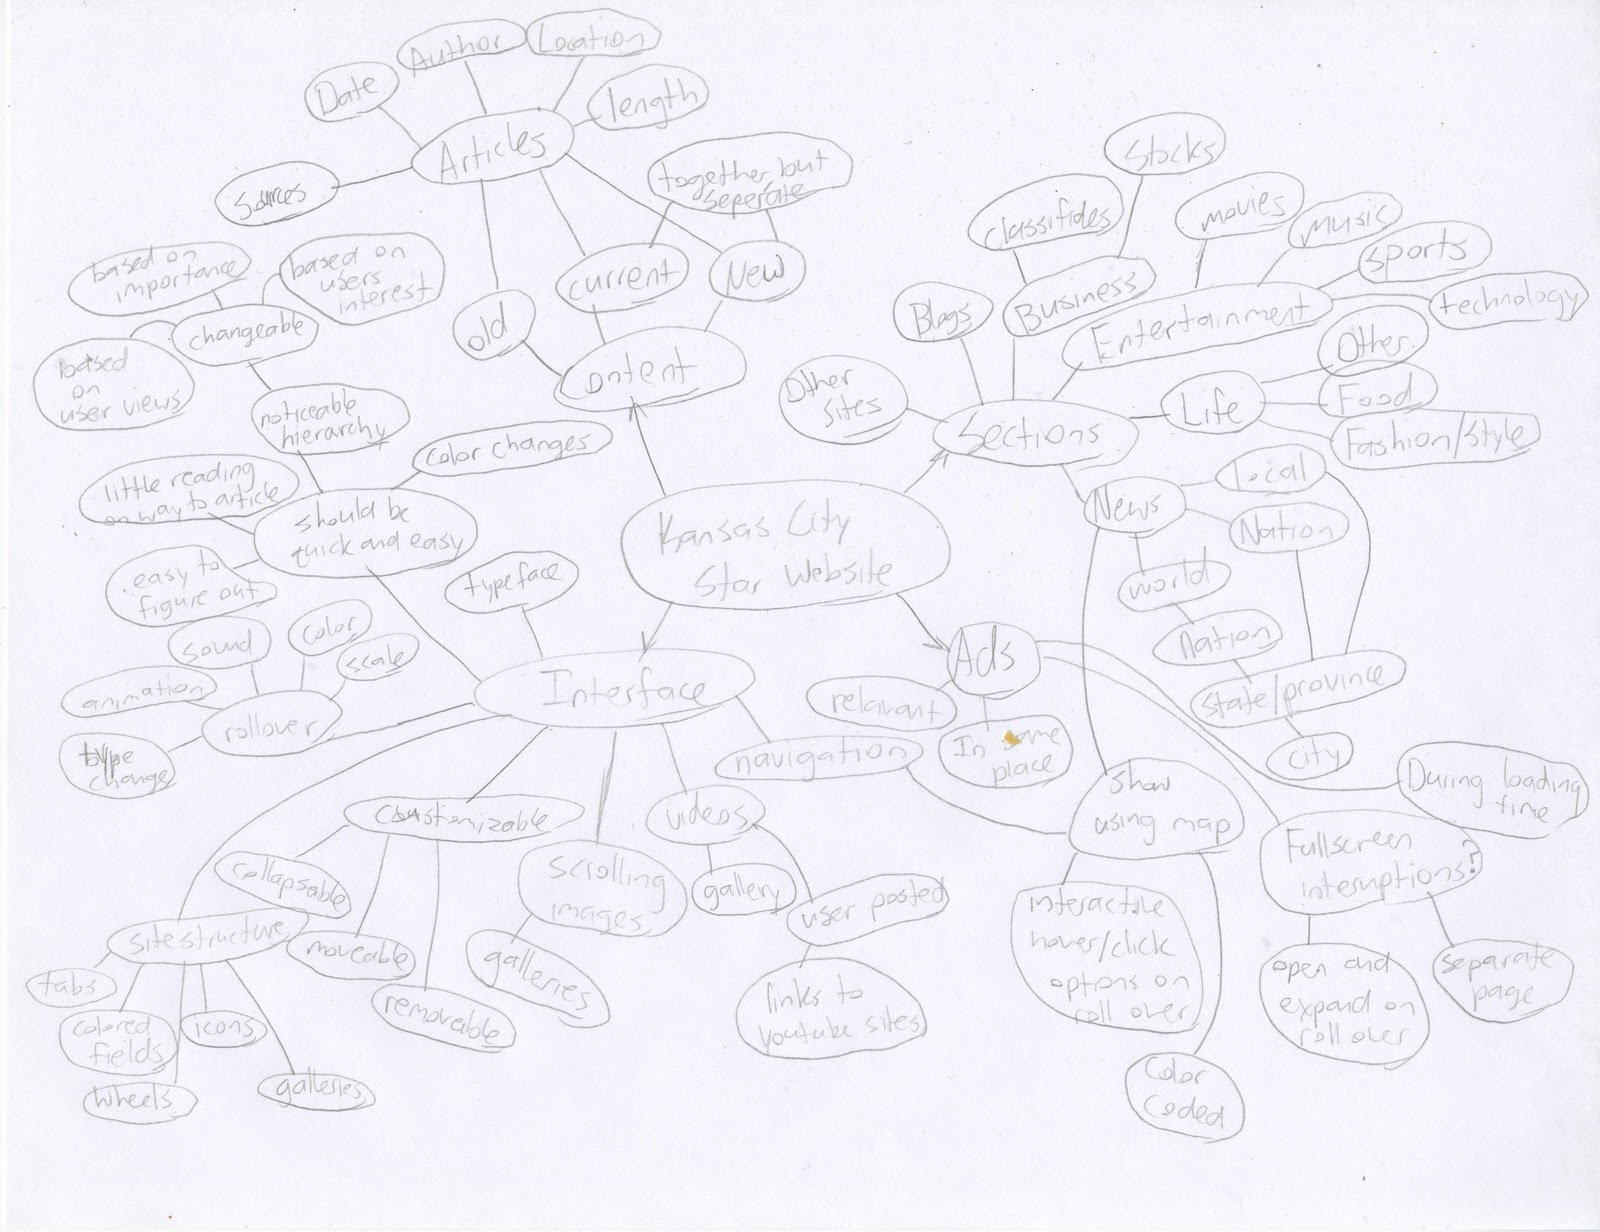 Author
Location
Date
length
Articles
Sources
together but
seperate
current
New
old
ontent
based on
importance
based on
users
interest
changeable
based
on
user views
noticeable
hierarchy
color changes
little reading
on way to article
should be
quick and easy
easy to
figure out
Stocks
classifides
movies
music
sports
technology
Blogs
Business
Entertainment
Other
Food
Fashion/Style
Life
Other
sites
Sections
News
local
Nation
world
Nation
State/province
city
Kansas City
Star Website
typeface
sound
color
scale
animation
rollover
type
change
Interface
Ads
relavant
In same
place
navigation
show
using map
During loading
time
Fullscreen
interuptions?
coustomizable
videos
collapsable
scrolling
images
gallery
user posted
site structure
moveable
removeable
galleries
links to
youtube sites
tabs
colored
fields
icons
wheels
galleries
interactive
hover/click
options on
roll over
open and
expand on
roll over
separate
page
Color
Coded